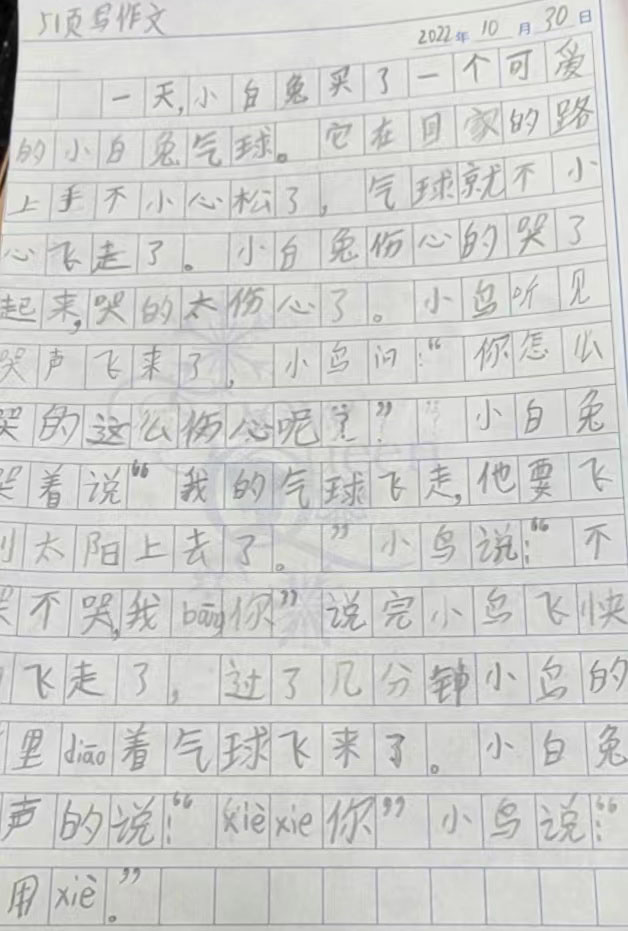 51页写作文
2022年 10月 30日
一天,小白兔买了一个可爱
的小白兔气球。它在回家的路
上手不小心松了,气球就不小
心飞走了。小白兔伤心的哭了
起来,哭的太伤心了。小鸟听见
哭声飞来了,小鸟问:“你怎么
哭的这么伤心呢?”小白兔
哭着说“我的气球飞走,他要飞
到太阳上去了。”小鸟说:“不
哭不哭,我bāng你”说完小鸟飞快
飞走了,过了几分钟小鸟的
里diāo着气球飞来了。小白兔
声的说:“xièxie你”小鸟说:“
用xiè。”